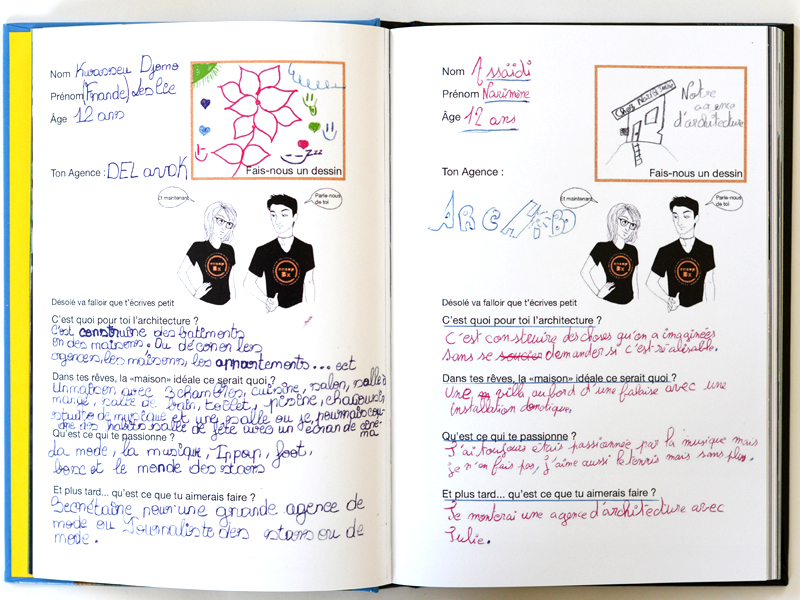 Nom Kwasseu Djomo
Prénom (Fnande) Leslie
Âge 12 ans
Ton Agence : DEL avok
Fais-nous un dessin
Et maintenant
Parle-nous
de toi
Désolé va falloir que t'écrives petit
C'est quoi pour toi l'architecture ?
C'est construire des batiments
on des maisons. Ou déconen les
agences, les maisons, les appantements... ect
Dans tes rêves, la «maison» idéale ce serait quoi ?
Un maison avec 3 chambres, cuisine, salon, salle à
mangé, salle de bain, toilet, pisine, chaquun,
studio de musique et une salle ou je pournais cou-
dre des habits salle de fête avec un écran de ciné-
ma
Qu'est ce qui te passionne ?
La mode, la musique, Ippop, foot,
boxe et le monde des stars
Et plus tard... qu'est ce que tu aimerais faire ?
Secrétaine pour une grande agence de
mode ou Journaliste des stars ou de
mode.
Nom Assaïdi
Prénom Narimène
Âge 12 ans
Notre
agence
d'architecture
Fais-nous un dessin
Ton Agence :
Archi-BD
Et maintenant
Parle-nous
de toi
Désolé va falloir que t'écrives petit
C'est quoi pour toi l'architecture ?
C'est construire des choses qu'on a imaginées
sans se soucier demander si c'est réalisable.
Dans tes rêves, la «maison» idéale ce serait quoi ?
Une villa au bord d'une falaise avec une
installation domotique.
Qu'est ce qui te passionne ?
J'ai toujours étais passionnée par la musique mais
je n'en fais pas, j'aime aussi le tennis mais sans plus.
Et plus tard... qu'est ce que tu aimerais faire ?
Je monterai une agence d'architecture avec
Julie.